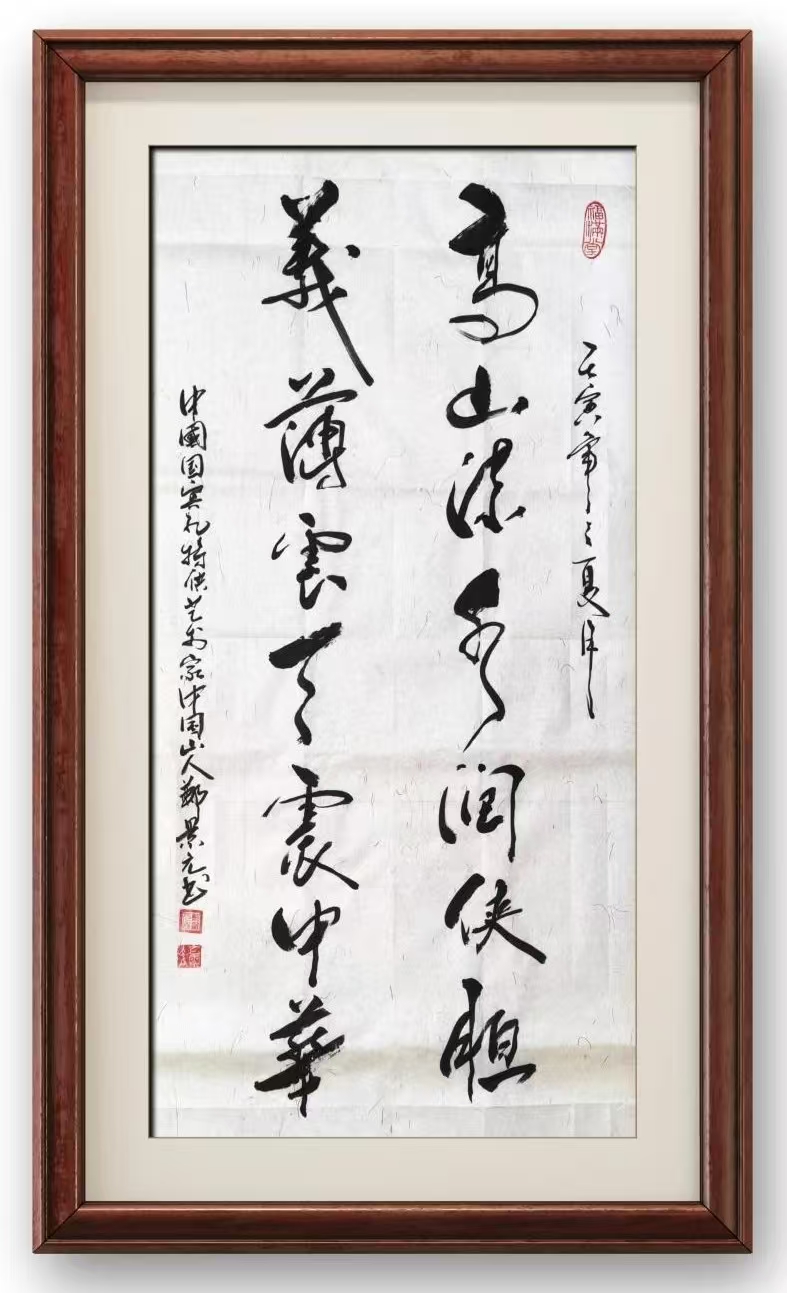 福满堂
壬寅年之夏
高山流水润侠胆
義薄雲天震中華
中國国宾礼特供艺术家中国山人鄭景元书